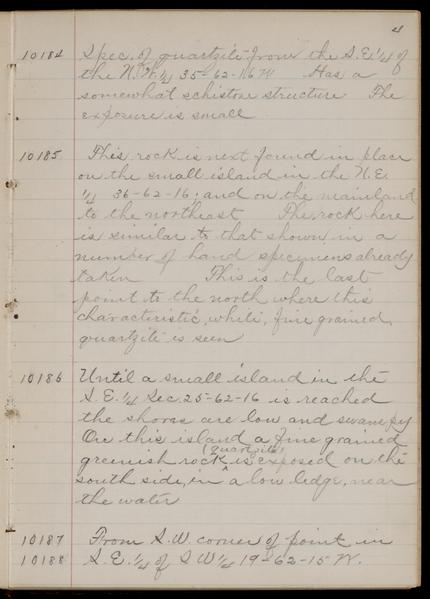 4
10184 Spec. of quartzite from the S.E. 1/4 of
the N.W. 1/4 35-62-16 W Has a
somewhat schistose structure The
exposure is small
10185 This rock is next found in place
on the small island in the N.E.
1/4 36-62-16; and on the mainland
to the northeast The rock here
is similar to that shown in a
number of hand specimens already
taken This is the last
point to the north where this
characteristic, white, fine grained,
quartzite is seen
10186 Until a small island in the
S.E. 1/4 Sec. 25-62-16 is reached
the shores are low and swampy
On this island a fine grained
(quartzite)
greenish rock ^ is exposed on the
south side, in a low ledge, near
the water
10187 From S.W. corner of point in
10188 S.E. 1/4 of SW 1/4 19-62-15 W.